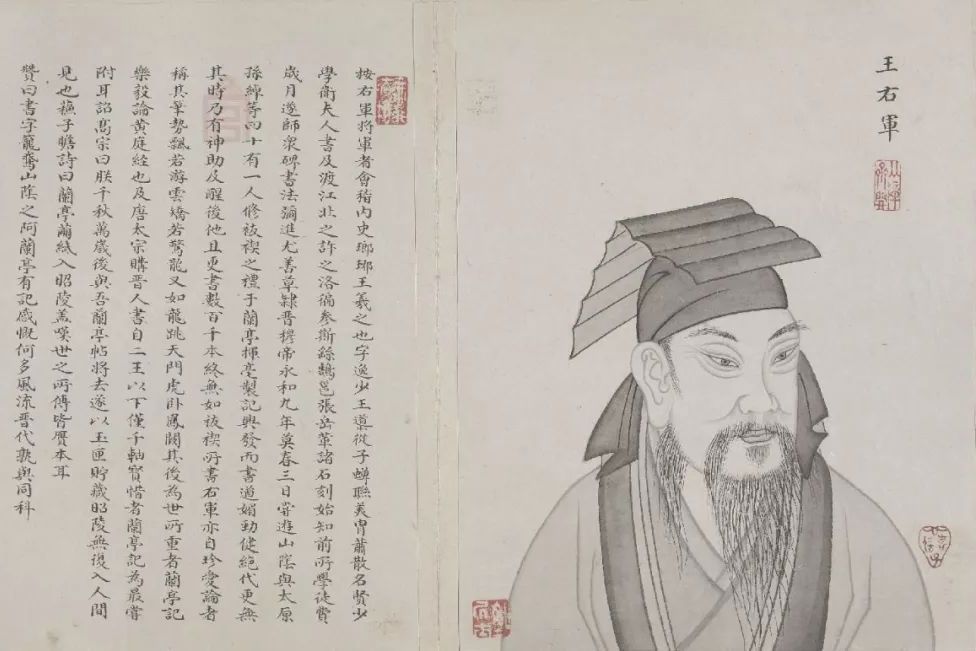 王右軍
按右軍將軍者會稽內史瑯琊王羲之也字逸少王導從子蟬聯美胄蕭散名賢少
學衛夫人書及渡江北之許之洛徧參斯繇鵠邕張岳華諸石刻始知前所學徒費
歲月遂師衆碑書法彌進尤善草隸晋穆帝永和九年莫春三日甞遊山陰與太原
孫綽等四十有一人修祓禊之禮于蘭亭揮毫製記興發而書道媚勁健絕代更無
其時乃有神助及醒後他日更書數百千本終無如祓禊所書右軍亦自珍愛論者
稱其筆勢飄若游雲矯若驚龍又如龍跳天門虎卧鳳闕其後為世所重者蘭亭記
樂毅論黄庭經也及唐太宗購晋人書自二王以下僅千軸寶惜者蘭亭記為最嘗
附耳謟髙宗曰朕千秋萬歲後與吾蘭亭帖將去遂以玉匣貯藏昭陵無復入人間
見也蘓子瞻詩曰蘭亭繭紙入昭陵盖嘆世之所傳皆贋本耳
贊曰書字籠鵞山陰之阿蘭亭有記感慨何多風流晋代孰與同科